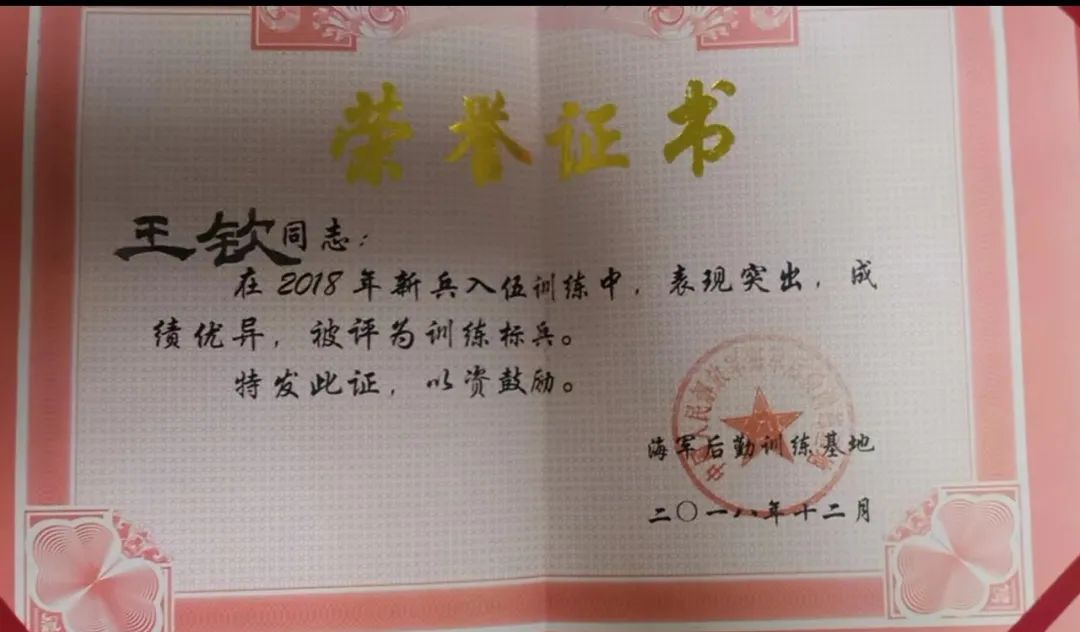 荣誉证书
王钦同志：
在2018年新兵入伍训练中，表现突出，成
绩优异，被评为训练标兵。
特发此证，以资鼓励。
海军后勤训练基地
二〇一八年十二月